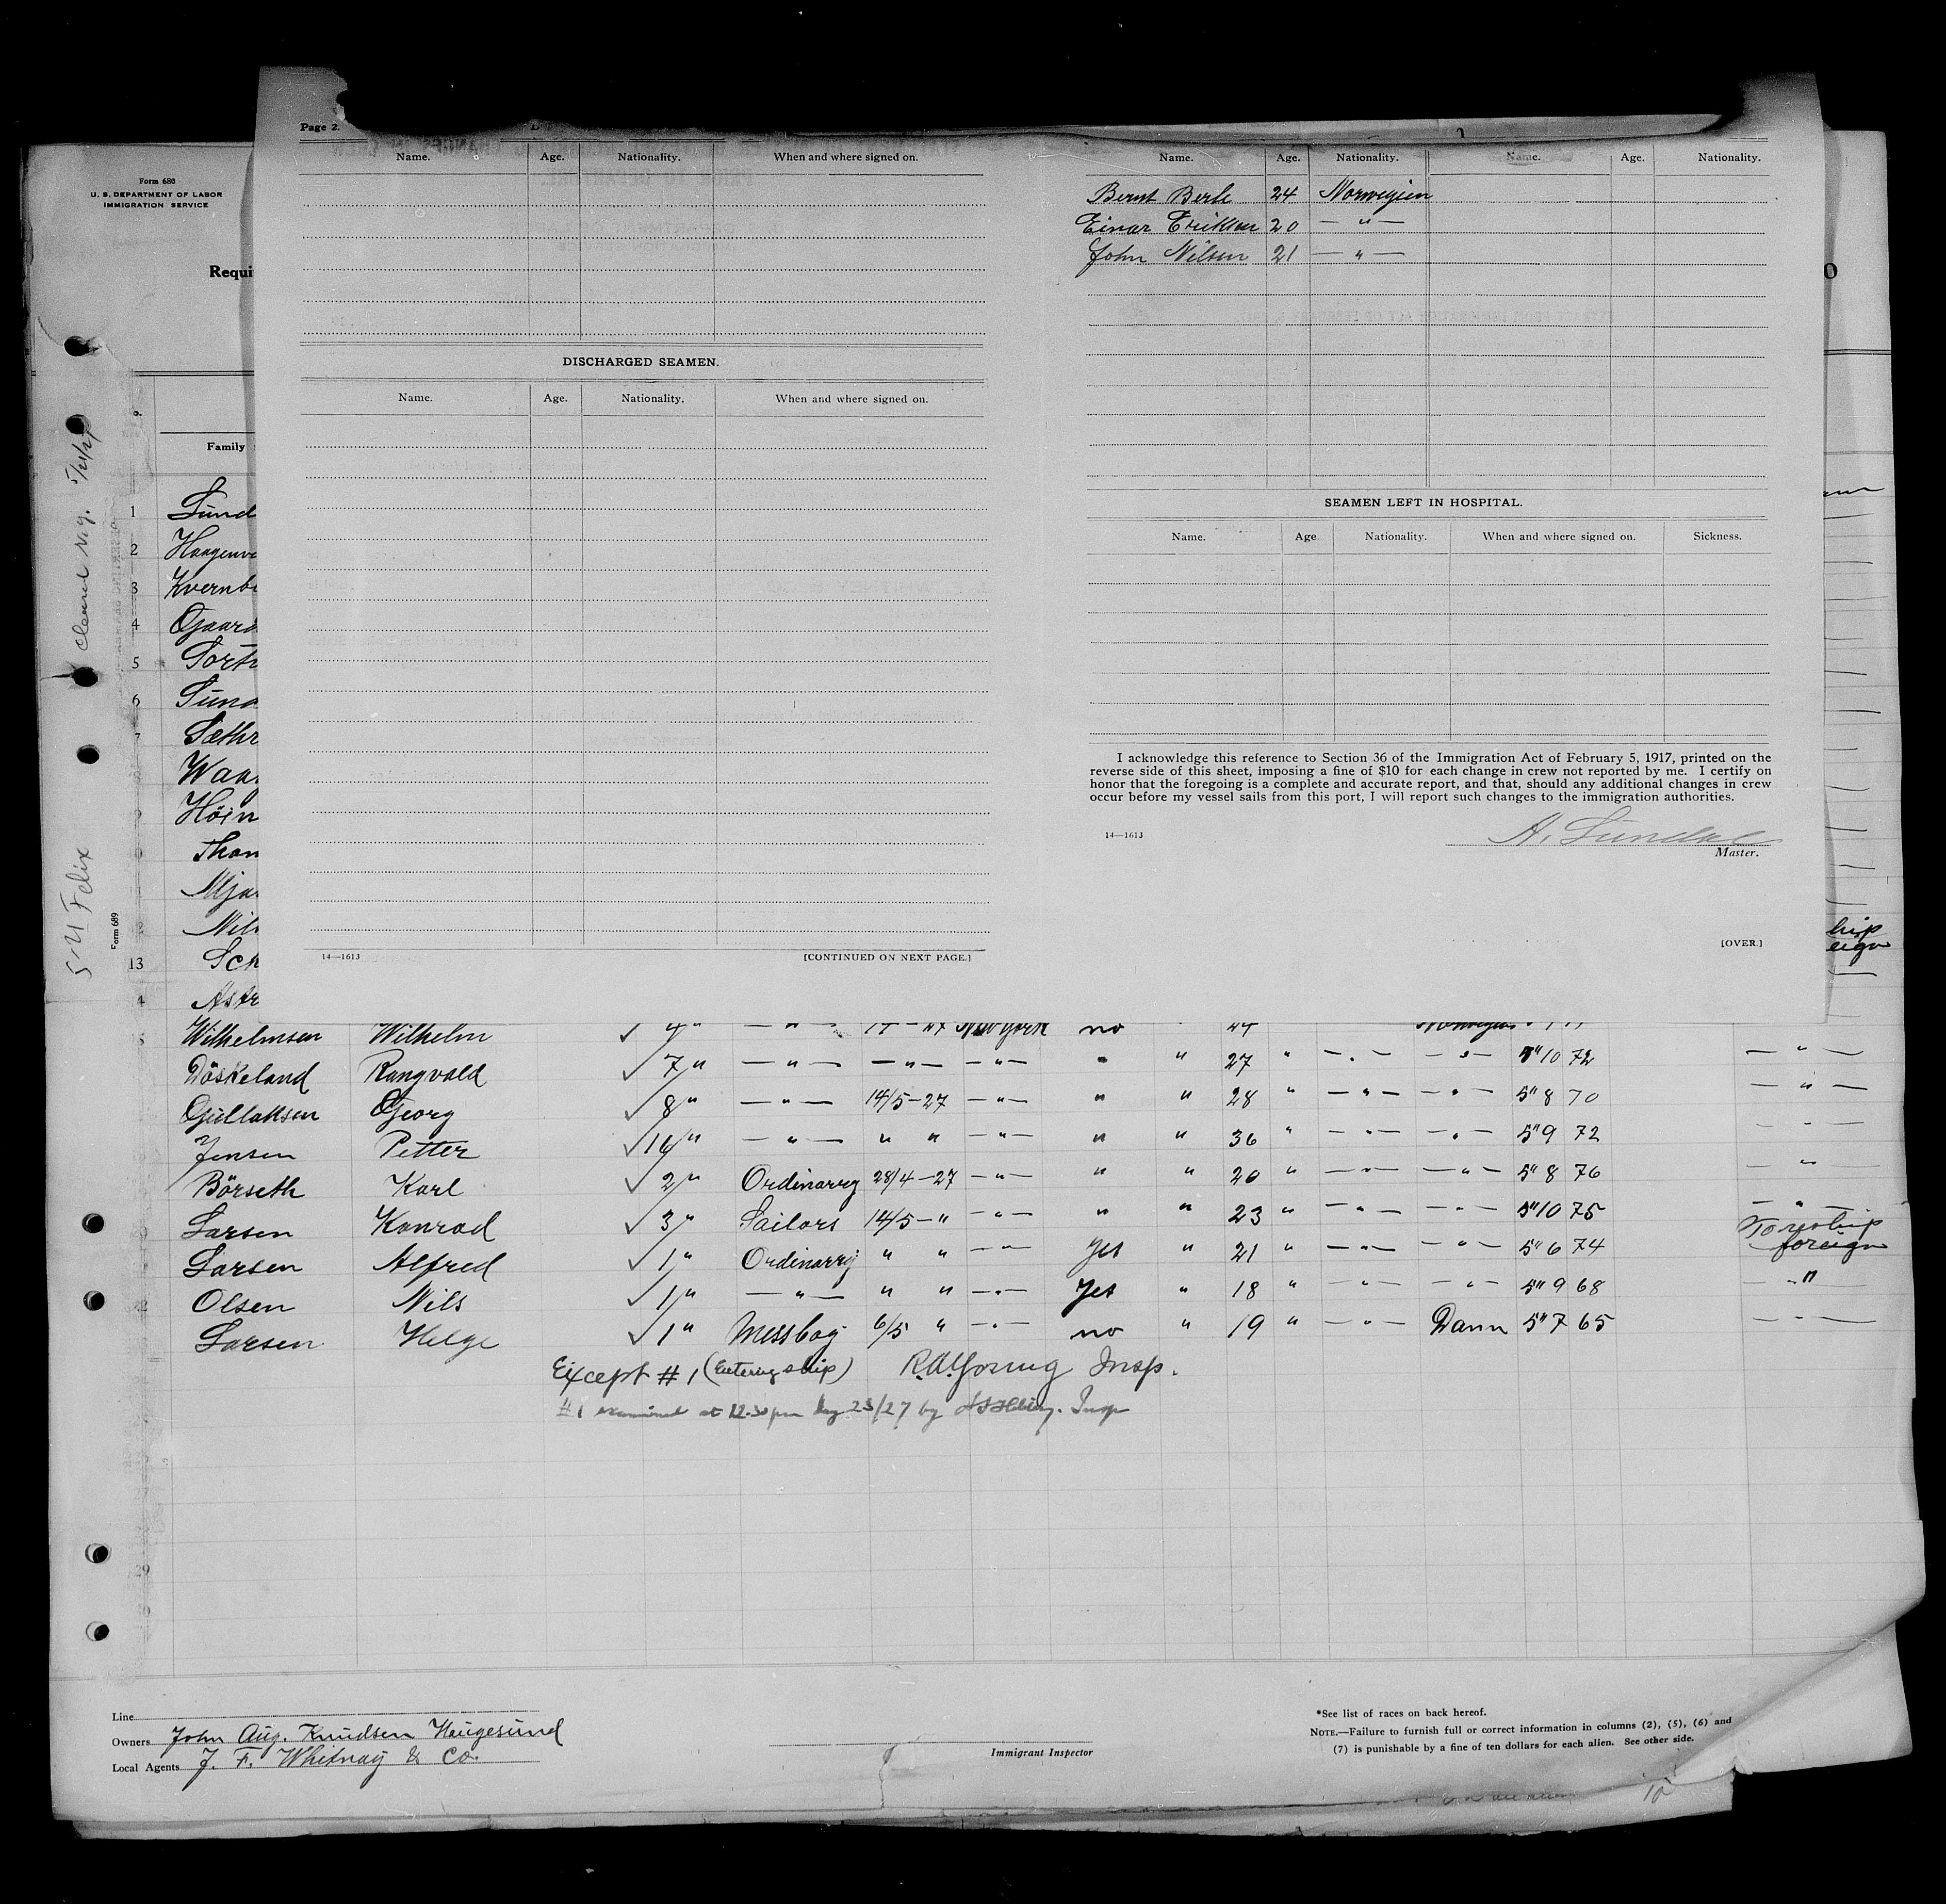 Page 2.
Name. Age. Nationality. When and where signed on.
DISCHARGED SEAMEN.
Name. Age. Nationality. When and where signed on.
14—1613 [CONTINUED ON NEXT PAGE.]
Name. Age. Nationality. Name. Age. Nationality.
Bernt Berle 24 Norwegien
Einar Erikson 20 — " —
John Nilsen 21 — " —
SEAMEN LEFT IN HOSPITAL.
Name. Age Nationality. When and where signed on. Sickness.
I acknowledge this reference to Section 36 of the Immigration Act of February 5, 1917, printed on the
reverse side of this sheet, imposing a fine of $10 for each change in crew not reported by me. I certify on
honor that the foregoing is a complete and accurate report, and that, should any additional changes in crew
occur before my vessel sails from this port, I will report such changes to the immigration authorities.
14—1613
A. Sundal
Master.
[OVER.]
Form 680
U. S. DEPARTMENT OF LABOR
IMMIGRATION SERVICE
Requi
Family
1 Sund
2 Haagenv
3 Kvernb
4 Gaard
5 Torh
6 Sund
7 Sæthr
Waa
Höin
Thon
Mja
Nil
13 Sch
4 Astr
hip
eign
Form 689
Wilhelmsen Wilhelm ✓ 4 " — " — New York no 24
Döskeland Rangvald ✓ 7 " — " — — " — — " — " " 27 " — " — — " — 5"10 72 — " —
Gullaksen Georg ✓ 8 " — " — 14/5-27 — " — " " 28 " — " — — " — 5"8 70 — " —
Jensen Petter ✓ 16 " — " — " " — " — " " 36 " — " — — " — 5"9 72 — " —
Börseth Karl ✓ 2 " Ordinarry 28/4-27 — " — " " 20 " — " — — " — 5"8 76 — " —
Larsen Konrad ✓ 3 " Sailors 14/5-" — " — " " 23 " — " — — " — 5"10 75 — " —
Larsen Alfred ✓ 1 " Ordinarry " " — " — Yes " 21 " — " — — " — 5"6 74 To reship foreign
Olsen Nils ✓ 1 " — " — " " — " — Yes " 18 " — " — — " — 5"9 68 — " —
Larsen Helge ✓ 1 " Messboy 6/5 " — " — no " 19 " — " — Dann 5"7 65 — " —
Except #1 (Entering ship) R.A. Young Insp.
#1 examined at 12.30 pm 23/27 by Insp
29
Line
Owners John Aug. Knudsen Haugesund
Local Agents J. F. Whitnay & Co.
Immigrant Inspector
*See list of races on back hereof.
NOTE.—Failure to furnish full or correct information in columns (2), (5), (6) and
(7) is punishable by a fine of ten dollars for each alien. See other side.
10